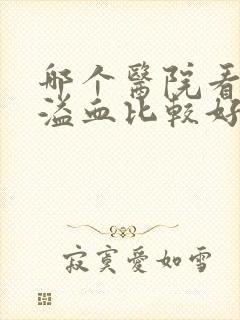 哪个醫院看
溢血比較好
寂寞愛如雪